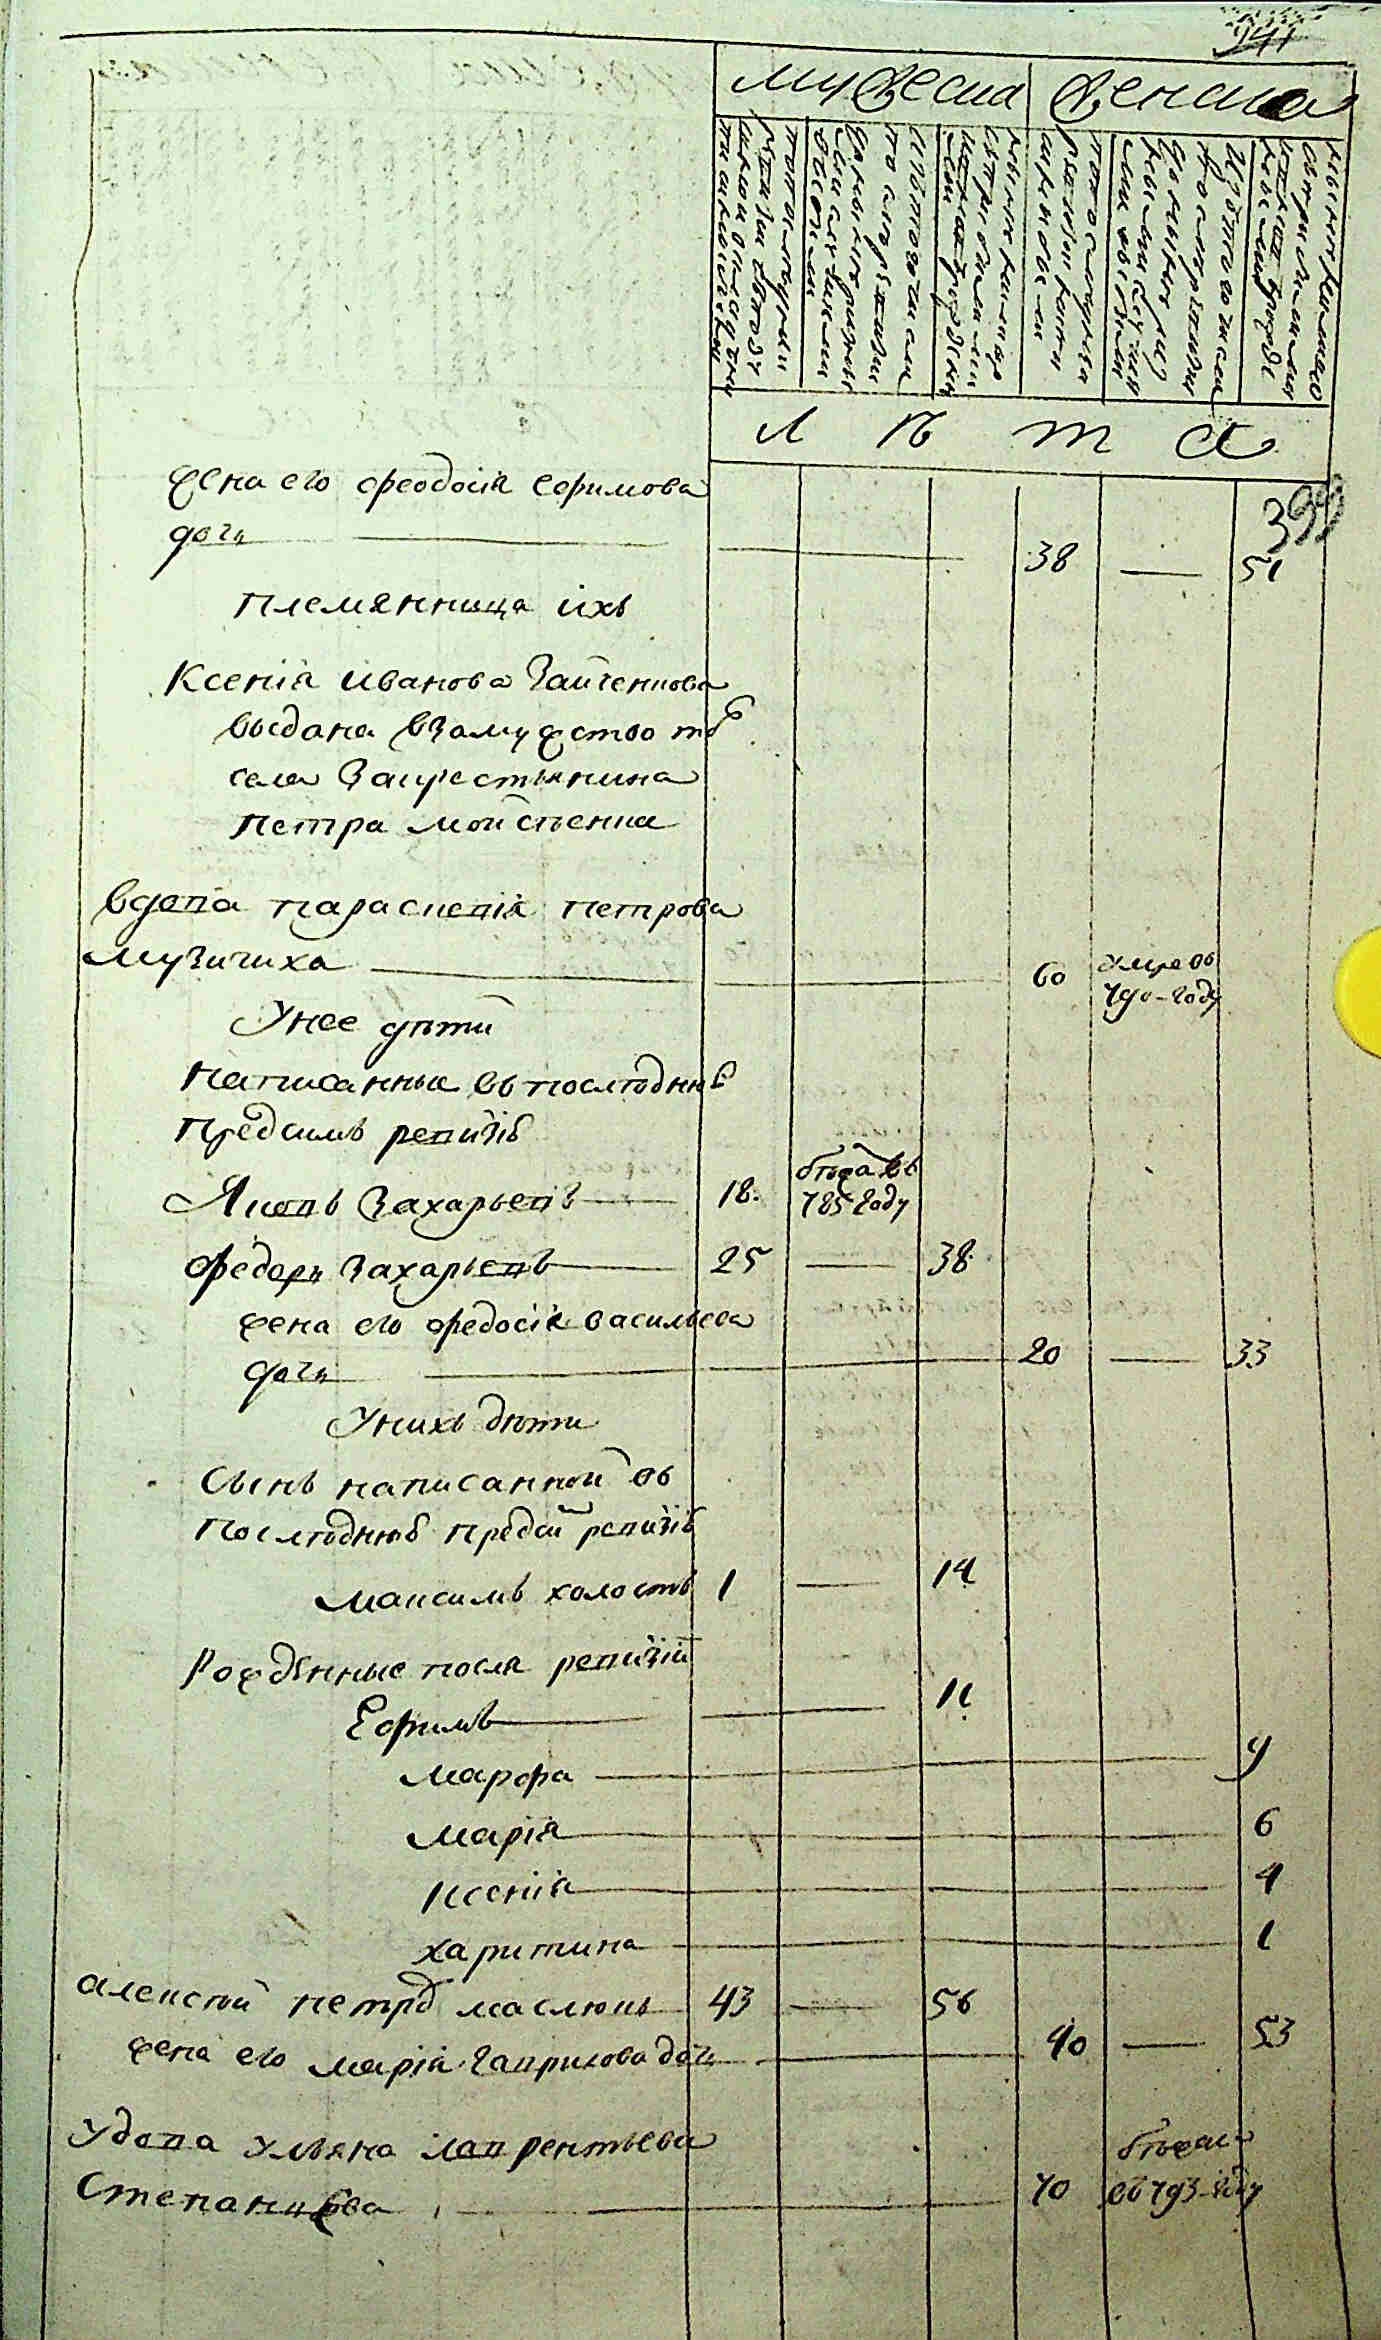 941
мужеска женска
л ѣ т а
399
жена его Феодосія Ефимова
дочь 38 51
племянница ихъ
Ксенія Иванова Зайченкова
выдана взамужство тоѣ
села за крестьянина
Петра Мойсѣенка
вдова Параскевія Петрова
Музичиха 60 умре въ 790-году
У нее дѣти
написанные въ последнюю
предсимъ ревизію
Яковъ Захарьевъ 18. бѣжа въ 785 году
Федоръ Захарьевъ 25 38
жена его Федосія Васильева
дочь 20 33
У нихъ дѣти
Сынъ написанной въ
последнюю предсим ревизію
Максимъ холостъ 1 14
рожденные после ревизіи
Ефимъ 11
Марфа 9
Марія 6
Ксенія 4
Харитина 1
Алексѣй Петров Маслюкъ 43 56
жена его Марія Гаврилова дочь 40 53
Удова Ульяна Лаврентьева
Степаникова 70 бѣжала въ 793-году